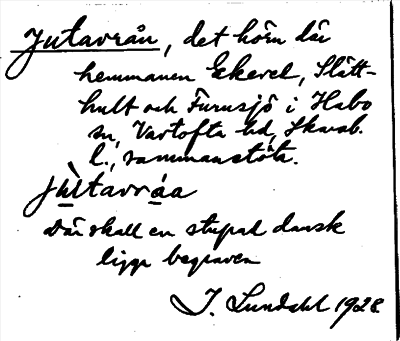 Jutavrån, det hörn där
hemmanen Ekered, Slätt-
hult och Furusjö i Habo
sn, Vartofta hd, Skarab.
l., sammanstöta.
jùtavråa
Där skall en stupad dansk
ligga begraven
J. Lundahl 1928.